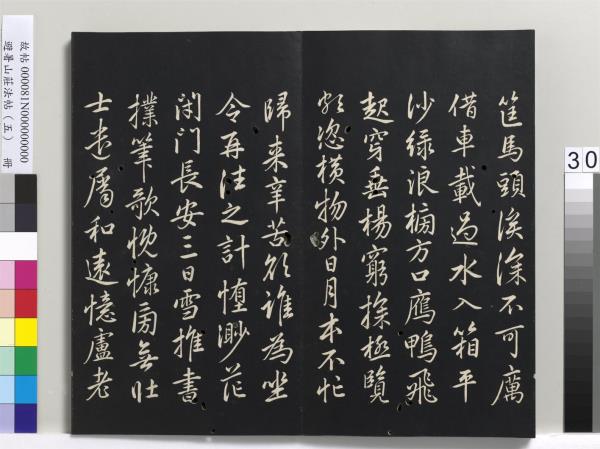 筐馬頭溪深不可厲
借車載過水入箱平
沙綠浪榜方口鴈鴨飛
起穿垂楊窮探極覽
頗恣橫物外日月本不忙
歸来辛苦欲誰為坐
令再往之計墮渺茫
閉門長安三日雪推書
撲筆歌慨慷房無壯
士遣屬和遠憶盧老
故帖 000081N000000000
避暑山莊法帖（五） 冊
30